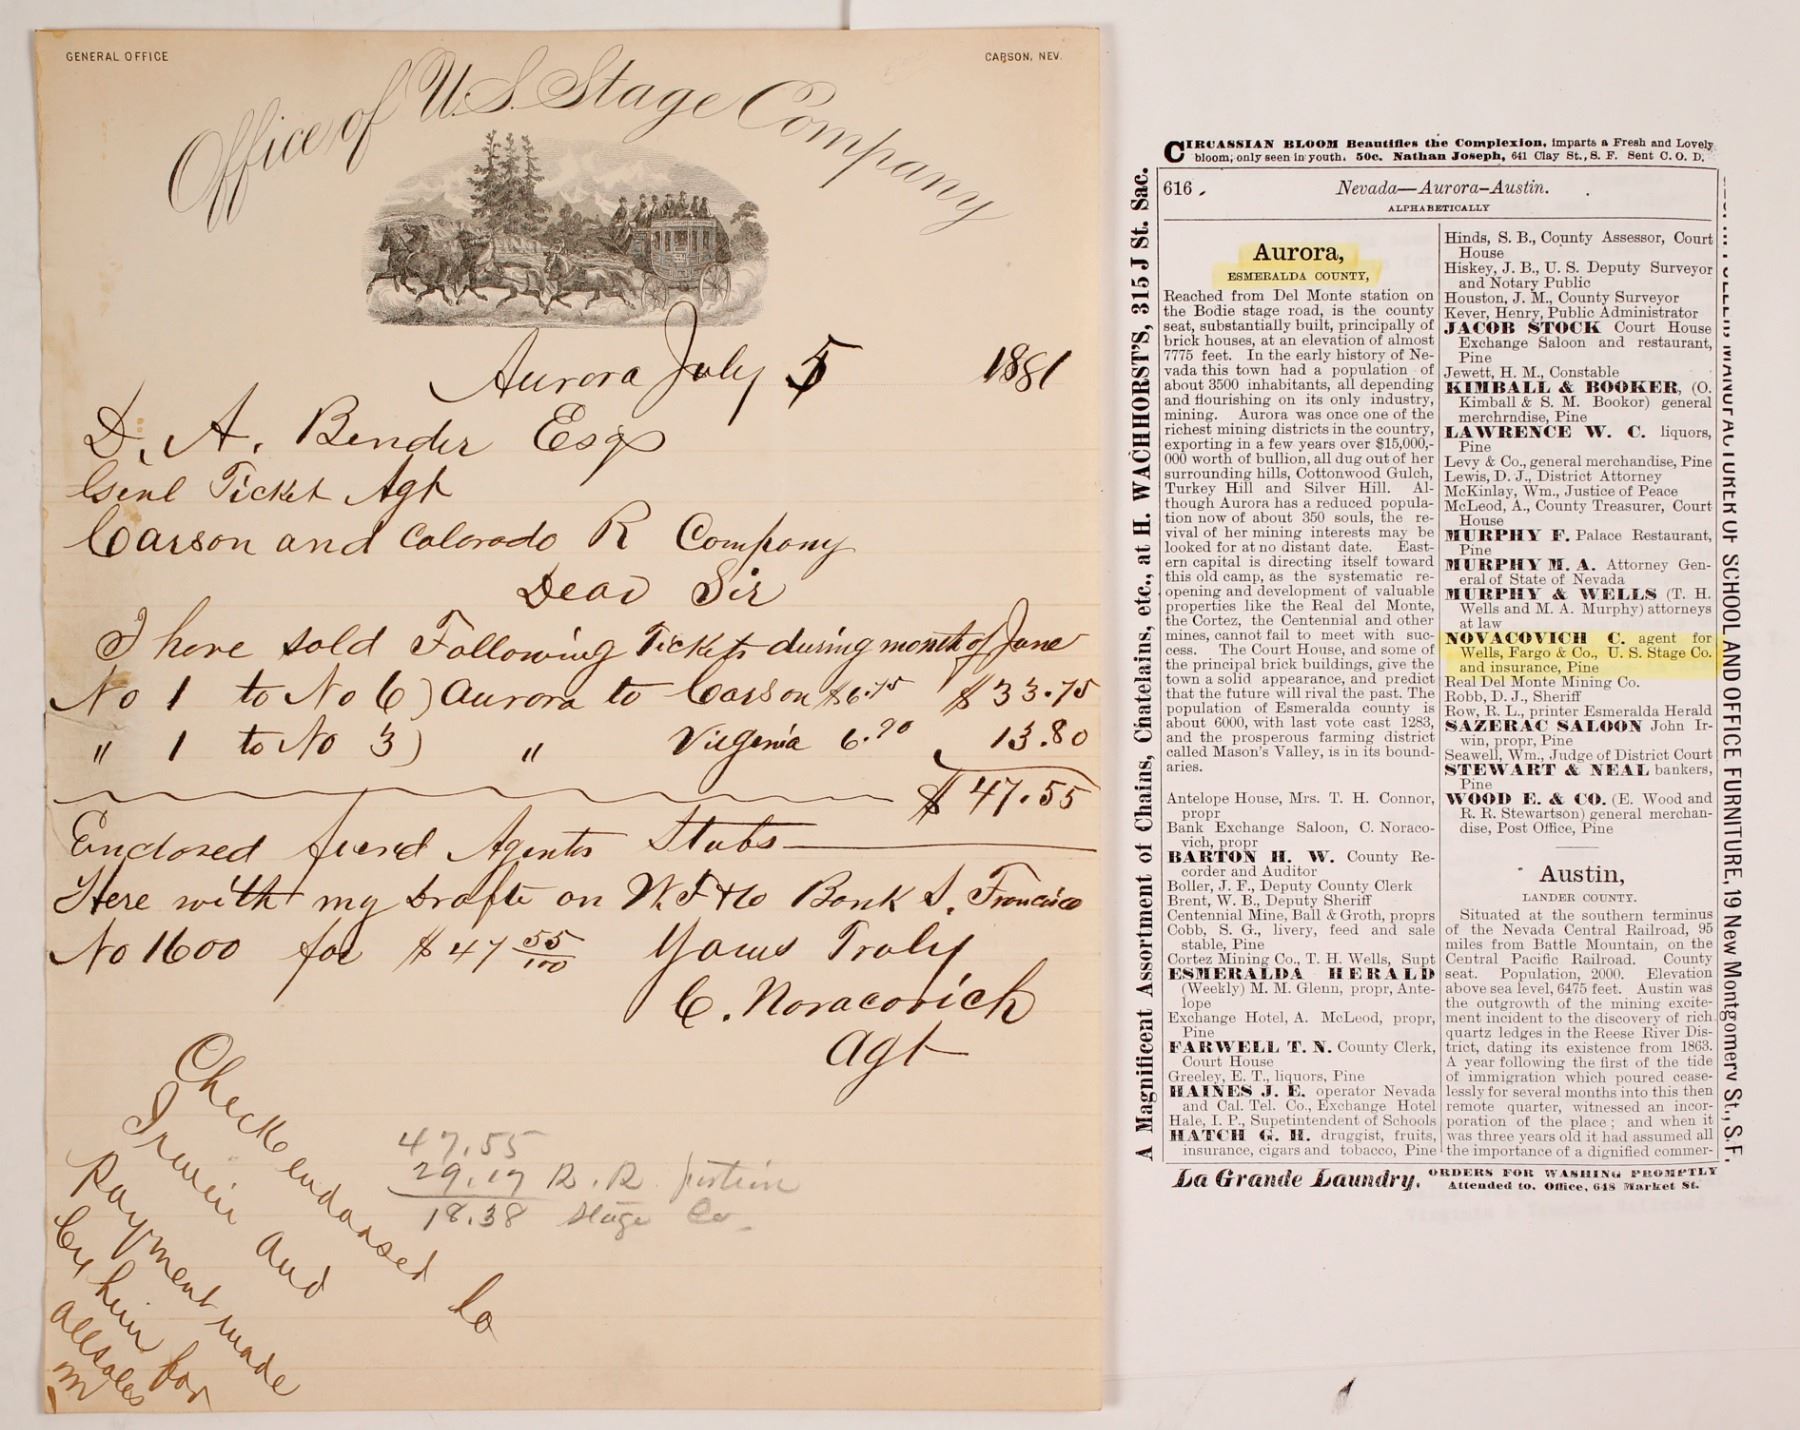 GENERAL OFFICE
CARSON, NEV.
Office of U.S. Stage Company
Aurora July 5 1881
D. A. Bender Esq
Genl Ticket Agt
Carson and Colorado R Company
Dear Sir
I have sold Following Tickets during month of June
No 1 to No 6) Aurora to Carson $6.75 $33.75
" 1 to No 3) " Virginia 6.90 13.80
$47.55
Enclosed find Agents Stubs
Here with my Drafte on W. F & Co Bank S. Francisco
No 1600 for $47 55/100 Yours Truly
C. Novacovich
Agt
Check endorsed to
Irwin and
Payment made
by him for
all sales
in
47.55
29.17 R.R portion
18.38 Stage Co.
CIRCASSIAN BLOOM Beautifies the Complexion, imparts a Fresh and Lovely
bloom, only seen in youth. 50c. Nathan Joseph, 641 Clay St., S. F. Sent C. O. D.
A Magnificent Assortment of Chains, Chatelains, etc., at H. WACHHORST'S, 315 J St. Sac.
616 Nevada—Aurora–Austin.
ALPHABETICALLY
Aurora,
ESMERALDA COUNTY,
Reached from Del Monte station on
the Bodie stage road, is the county
seat, substantially built, principally of
brick houses, at an elevation of almost
7775 feet. In the early history of Ne-
vada this town had a population of
about 3500 inhabitants, all depending
and flourishing on its only industry,
mining. Aurora was once one of the
richest mining districts in the country,
exporting in a few years over $15,000,-
000 worth of bullion, all dug out of her
surrounding hills, Cottonwood Gulch,
Turkey Hill and Silver Hill. Al-
though Aurora has a reduced popula-
tion now of about 350 souls, the re-
vival of her mining interests may be
looked for at no distant date. East-
ern capital is directing itself toward
this old camp, as the systematic re-
opening and development of valuable
properties like the Real del Monte,
the Cortez, the Centennial and other
mines, cannot fail to meet with suc-
cess. The Court House, and some of
the principal brick buildings, give the
town a solid appearance, and predict
that the future will rival the past. The
population of Esmeralda county is
about 6000, with last vote cast 1283,
and the prosperous farming district
called Mason's Valley, is in its bound-
aries.
Antelope House, Mrs. T. H. Connor,
propr
Bank Exchange Saloon, C. Noraco-
vich, propr
BARTON H. W. County Re-
corder and Auditor
Boller, J. F., Deputy County Clerk
Brent, W. B., Deputy Sheriff
Centennial Mine, Ball & Groth, proprs
Cobb, S. G., livery, feed and sale
stable, Pine
Cortez Mining Co., T. H. Wells, Supt
ESMERALDA HERALD
(Weekly) M. M. Glenn, propr, Ante-
lope
Exchange Hotel, A. McLeod, propr,
Pine
FARWELL T. N. County Clerk,
Court House
Greeley, E. T., liquors, Pine
HAINES J. E. operator Nevada
and Cal. Tel. Co., Exchange Hotel
Hale, I. P., Supetintendent of Schools
HATCH G. H. druggist, fruits,
insurance, cigars and tobacco, Pine
Hinds, S. B., County Assessor, Court
House
Hiskey, J. B., U. S. Deputy Surveyor
and Notary Public
Houston, J. M., County Surveyor
Kever, Henry, Public Administrator
JACOB STOCK Court House
Exchange Saloon and restaurant,
Pine
Jewett, H. M., Constable
KIMBALL & BOOKER, (O.
Kimball & S. M. Bookor) general
merchrndise, Pine
LAWRENCE W. C. liquors,
Pine
Levy & Co., general merchandise, Pine
Lewis, D. J., District Attorney
McKinlay, Wm., Justice of Peace
McLeod, A., County Treasurer, Court
House
MURPHY F. Palace Restaurant,
Pine
MURPHY M. A. Attorney Gen-
eral of State of Nevada
MURPHY & WELLS (T. H.
Wells and M. A. Murphy) attorneys
at law
NOVACOVICH C. agent for
Wells, Fargo & Co., U. S. Stage Co.
and insurance, Pine
Real Del Monte Mining Co.
Robb, D. J., Sheriff
Row, R. L., printer Esmeralda Herald
SAZERAC SALOON John Ir-
win, propr, Pine
Seawell, Wm., Judge of District Court
STEWART & NEAL bankers,
Pine
WOOD E. & CO. (E. Wood and
R. R. Stewartson) general merchan-
dise, Post Office, Pine
Austin,
LANDER COUNTY.
Situated at the southern terminus
of the Nevada Central Railroad, 95
miles from Battle Mountain, on the
Central Pacific Railroad. County
seat. Population, 2000. Elevation
above sea level, 6475 feet. Austin was
the outgrowth of the mining excite-
ment incident to the discovery of rich
quartz ledges in the Reese River Dis-
trict, dating its existence from 1863.
A year following the first of the tide
of immigration which poured cease-
lessly for several months into this then
remote quarter, witnessed an incor-
poration of the place; and when it
was three years old it had assumed all
the importance of a dignified commer-
MANUFACTURER OF SCHOOL AND OFFICE FURNITURE, 19 New Montgomery St., S.F.
La Grande Laundry, ORDERS FOR WASHING PROMPTLY
Attended to. Office, 648 Market St.